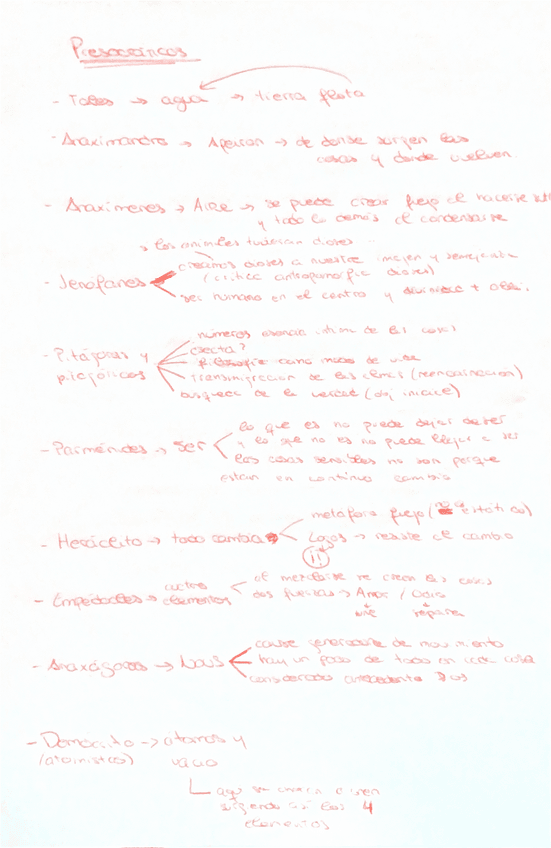 Presocráticos
- Tales → agua → tierra flota
- Anaximandro → Apeiron → de donde surgen las
cosas y donde vuelven.
- Anaxímenes → Aire → se puede crear fuego al hacerse
y todo lo demás al condensarse
→ los animales tendrían dioses ..
creamos dioses a nuestra imagen y semejanza
- Jenófanes
(critica antropomorfic dioses)
ser humano en el centro y + obj.
números esencia intima de las cosas
- Pitágoras y
pitagóricos
secta?
filosofía como modo de vida
transmigración de las almas (reencarnación)
búsqueda de la verdad (obj. inicial)
lo que es no puede dejar de ser
- Parménides → ser
y lo que no es no puede llegar a ser
las cosas sensibles no son porque
están en continuo cambio
metáfora fuego (no estático)
- Heráclito → todo cambia
Logos → resiste al cambio
- Empédocles → cuatro
elementos
al mezclarse se crean las cosas
dos fuerzas → Amor / Odio
une separa
causa generadora de movimiento
- Anaxágoras → Nous
hay un poco de todo en cada cosa
considerado antecedente Dios
- Demócrito → átomos y
(atomistas) vacío
aquí se unen
surgiendo así los 4
elementos